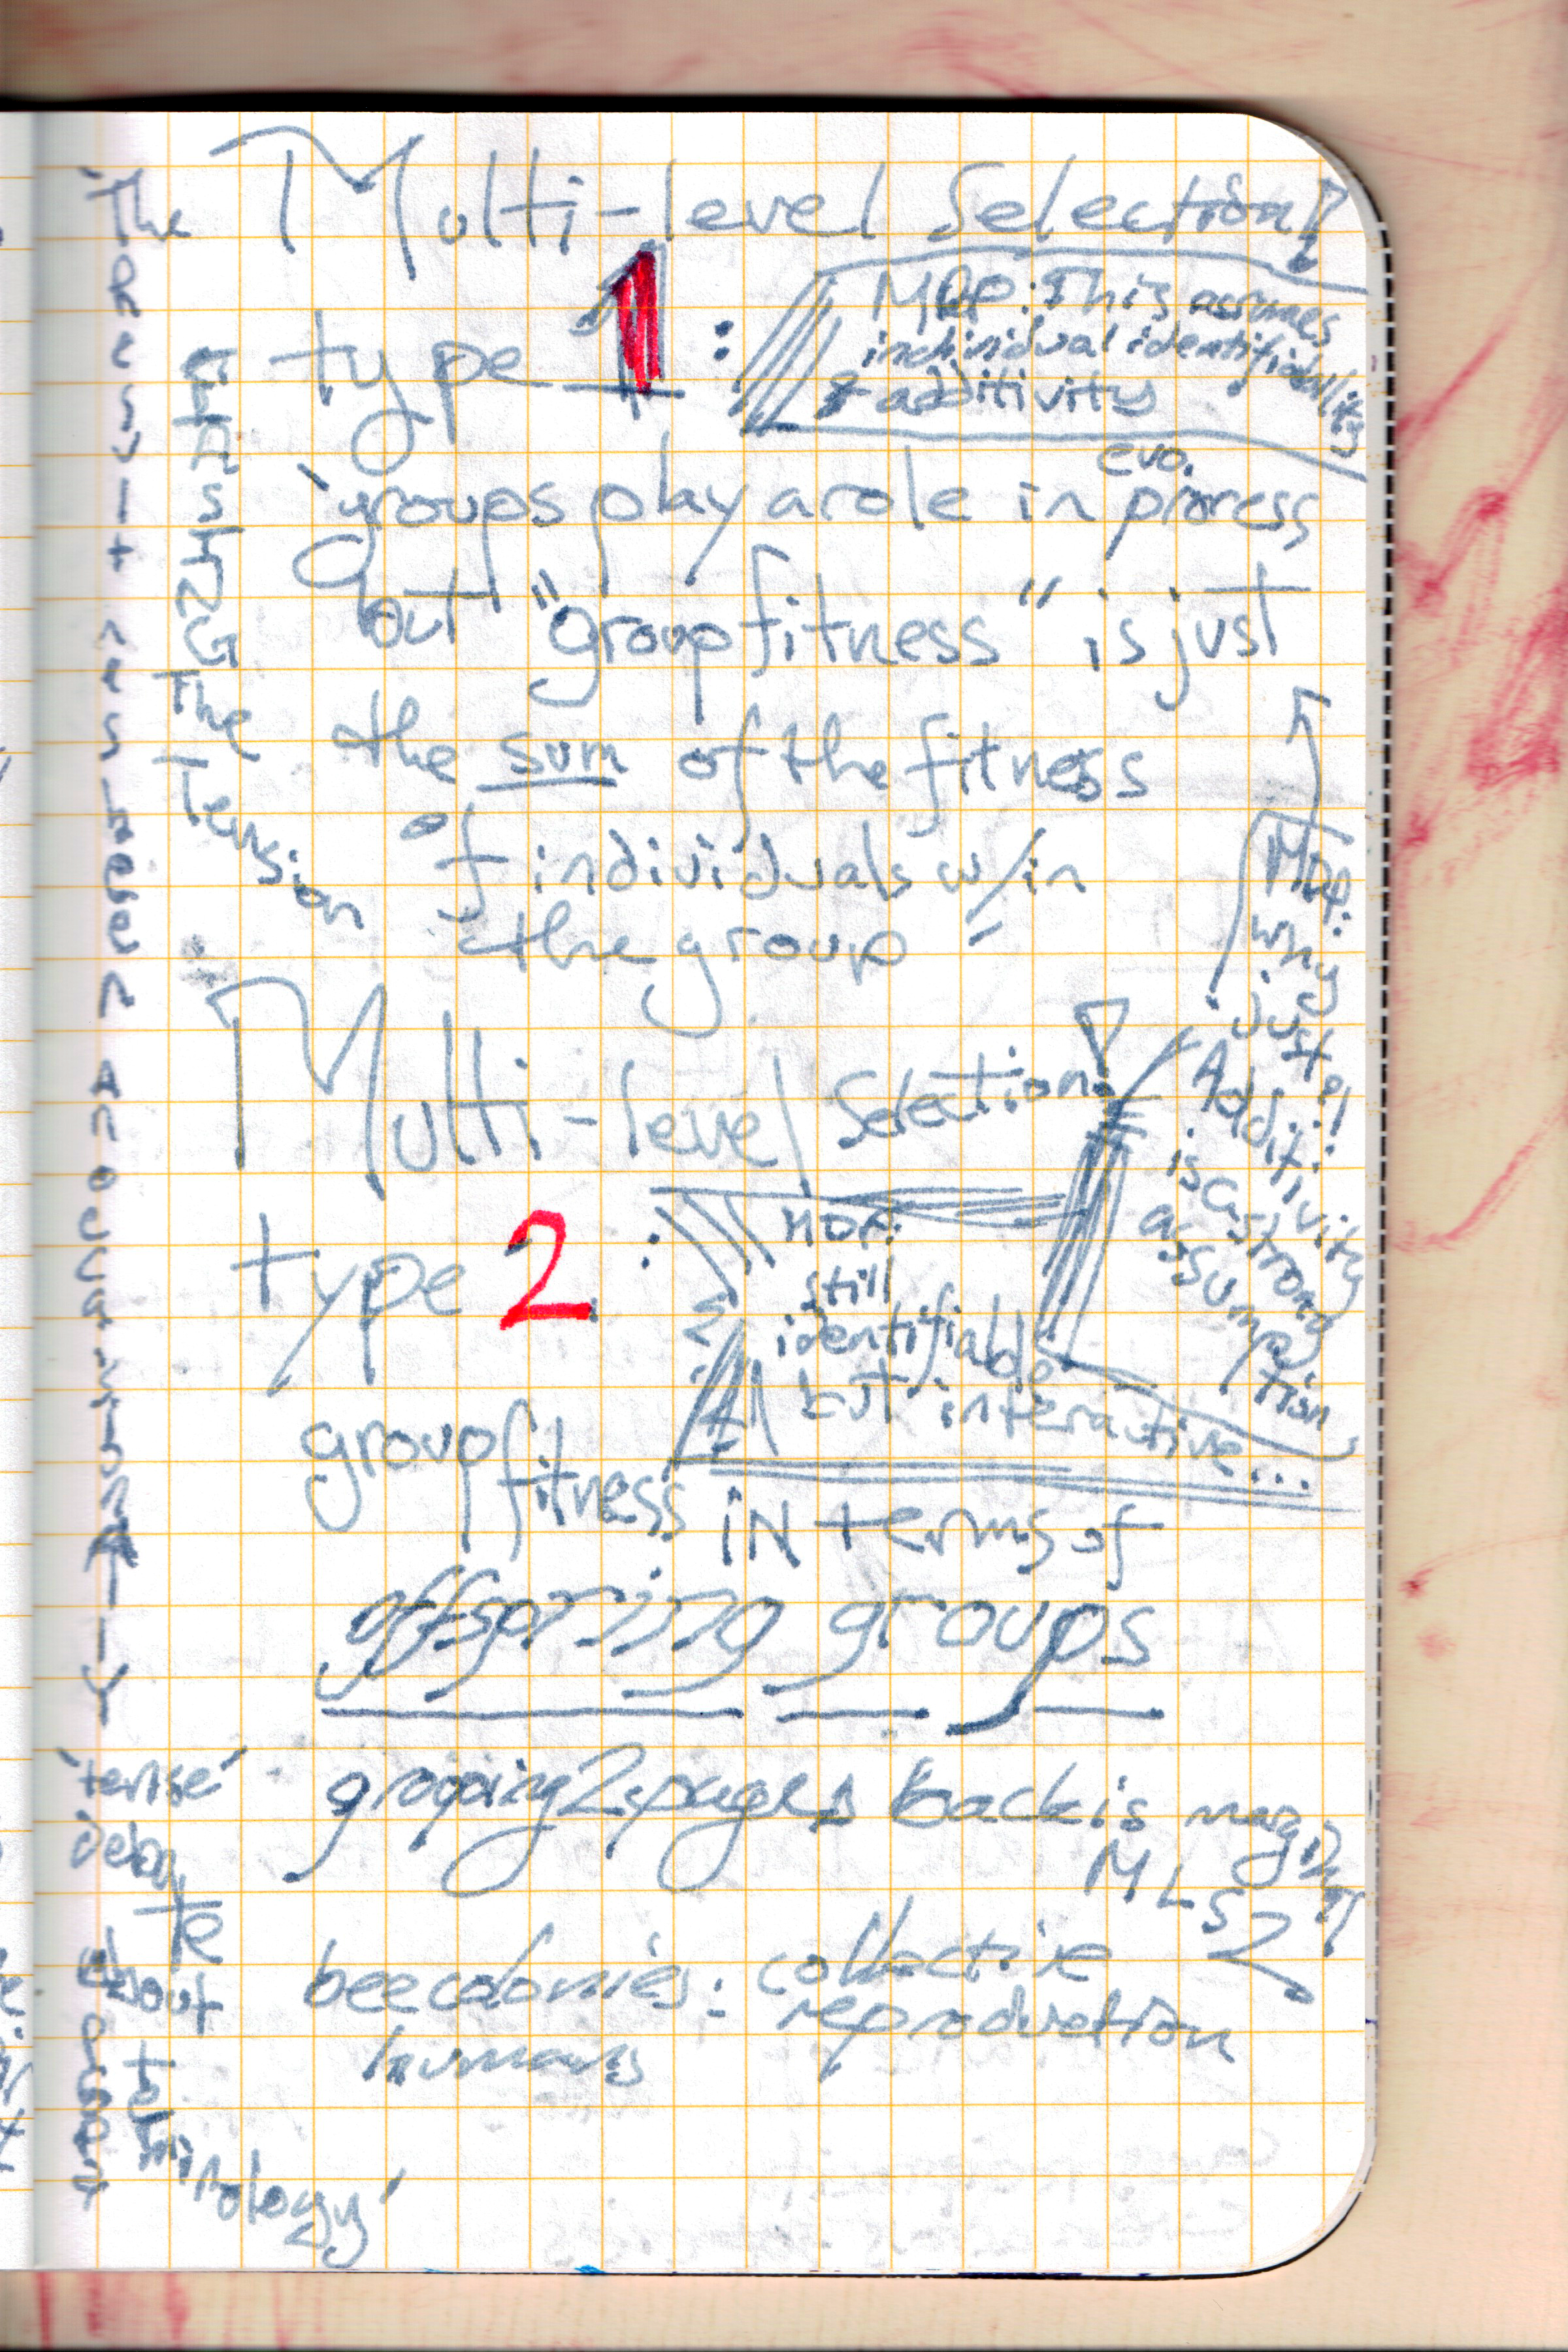 Multi-level Selection
type 1:
MDP: This assumes
individual identifiability
& additivity
groups play a role in evo. process
but "group fitness" is just
the sum of the fitness
of individuals w/in
the group
MDP:
why
just?!
Additivity
is a strong
assump
tion
Multi-level Selection
type 2:
MDP:
still
identifiable
but interactive...
group
fitness IN terms of
offspring groups
grouping 2 pages back is marginal
MLS2
bee colonies: collective
reproduction
humans
EASING
The
Tension
The
'tense'
debate
about
terminology'